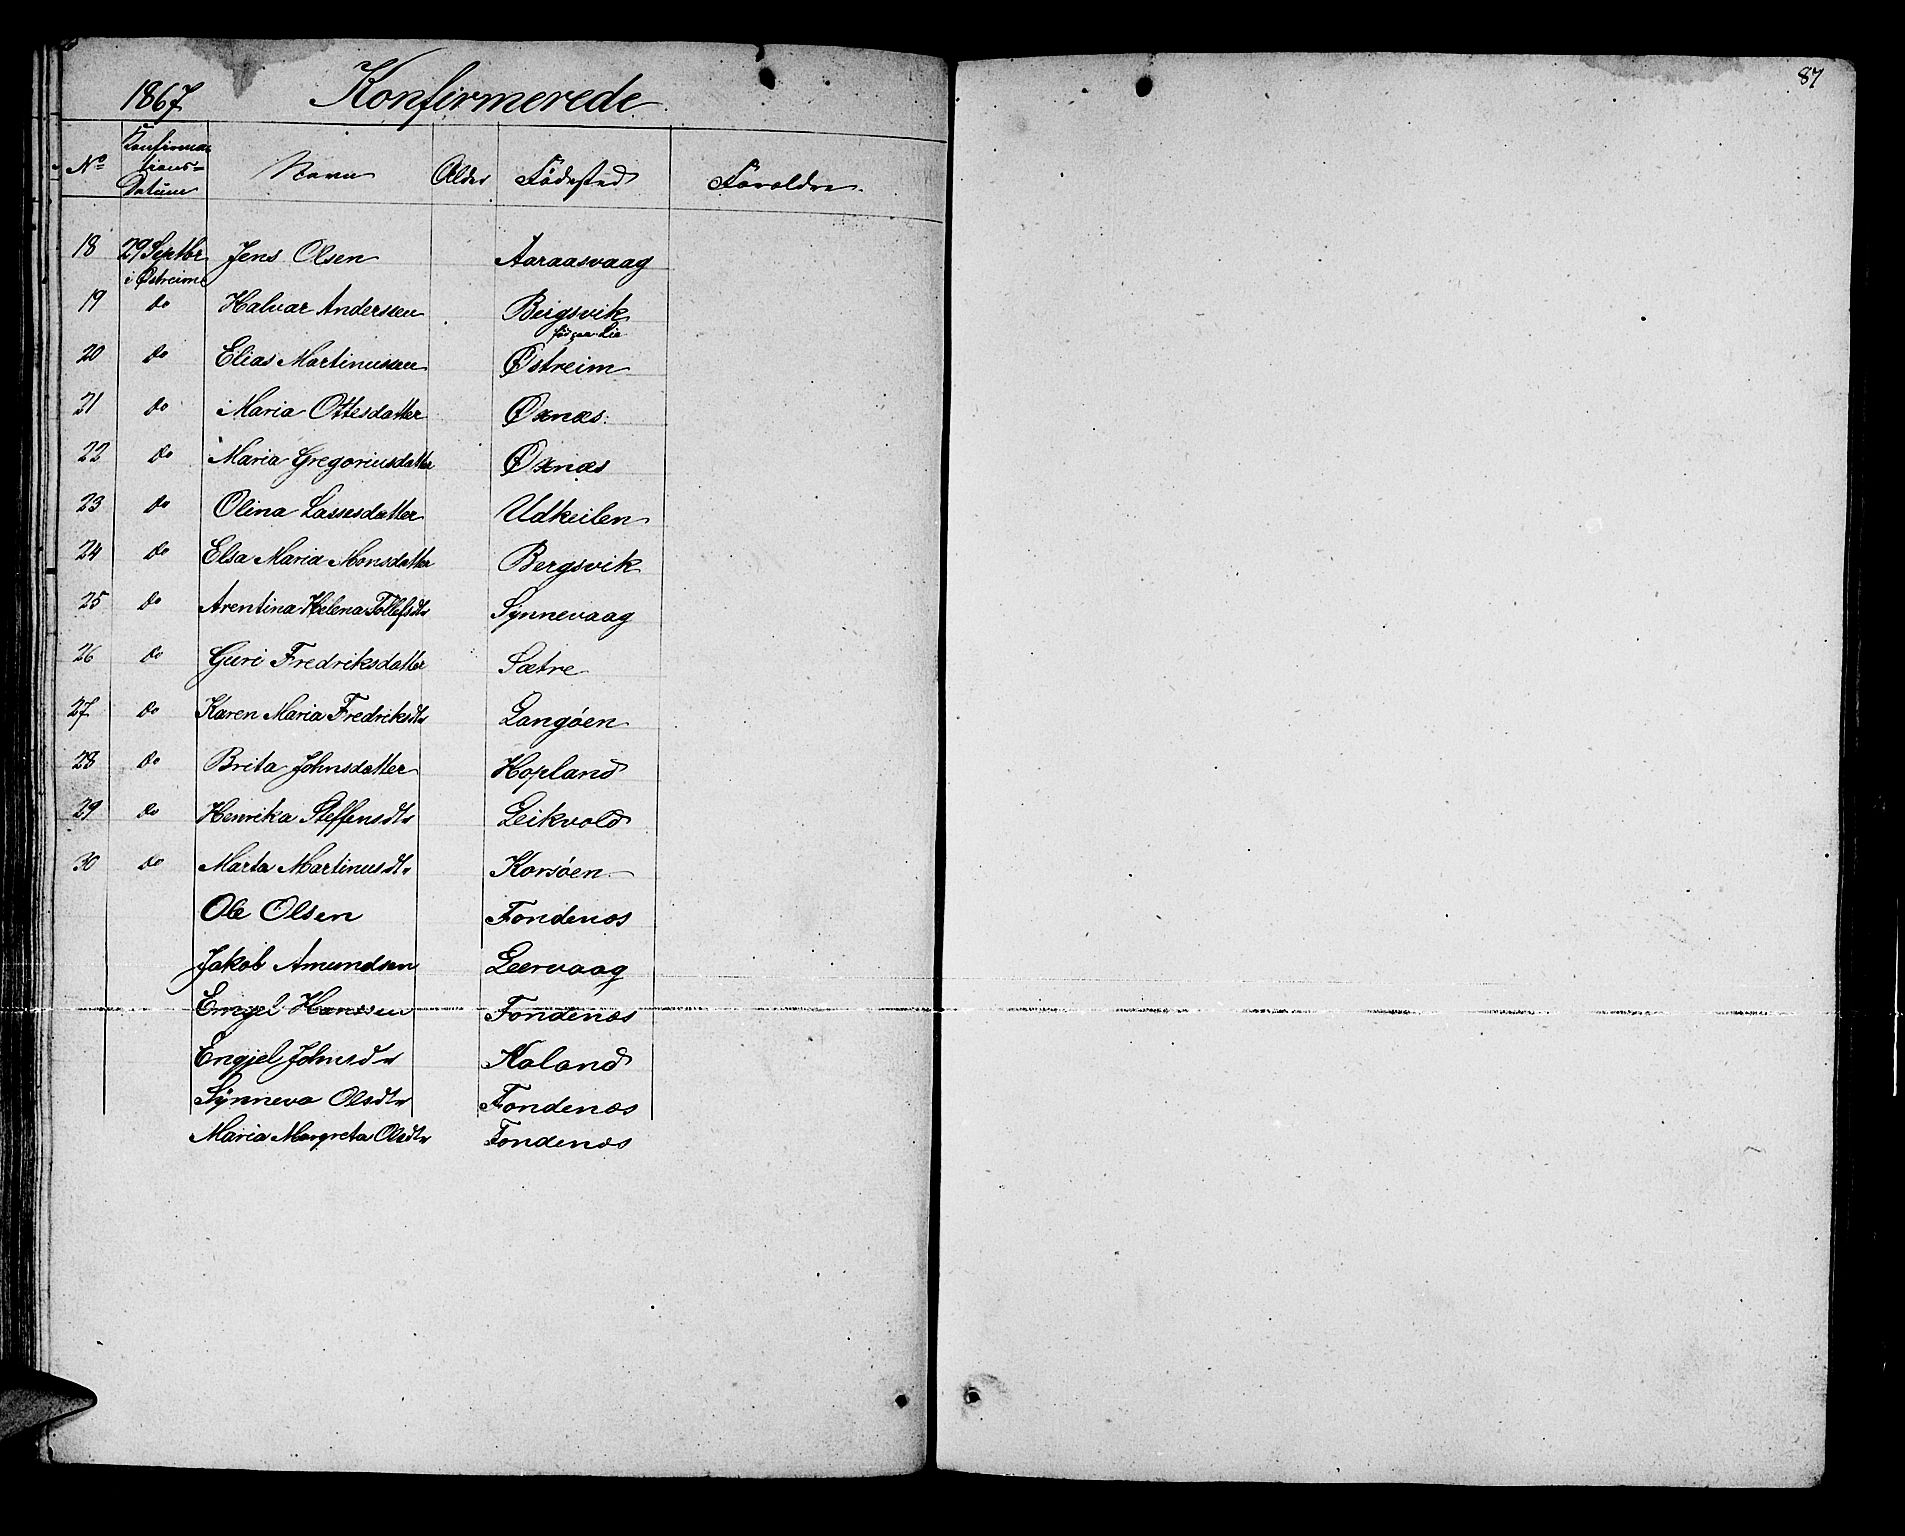 87
1867 Konfirmerede
No Konfirma-tions-Datum Navn Alder Fødested Forældre.
18 29 Septbr i Østreim Jens Olsen Aaraasvaag
19 do Halvar Andersen Bergsvik
20 do Elias Martinussen Østreim
21 do Maria Ottesdatter Øxnæs.
22 do Maria Gregoriusdatter Øxnæs
23 do Olina Lassesdatter Udkeilen
24 do Elsa Maria Monsdatter Bergsvik
25 do Arentina Helena Tollefsdtr Synnevaag
26 do Guri Fredriksdatter Sætre
27 do Karen Maria Fredriksdtr Langøen
28 do Brita Johnsdatter Hopland
29 do Henrika Steffensdtr Leikvold
30 do Marta Martinusdtr Korsøen
Ole Olsen Fondenæs
Jakob Amundsen Leervaag
Engel Hanssen Fondenæs
Engjel Johnsdtr Kaland
Synneva Olsdtr Fondenæs
Maria Margreta Olsdtr Fondenæs